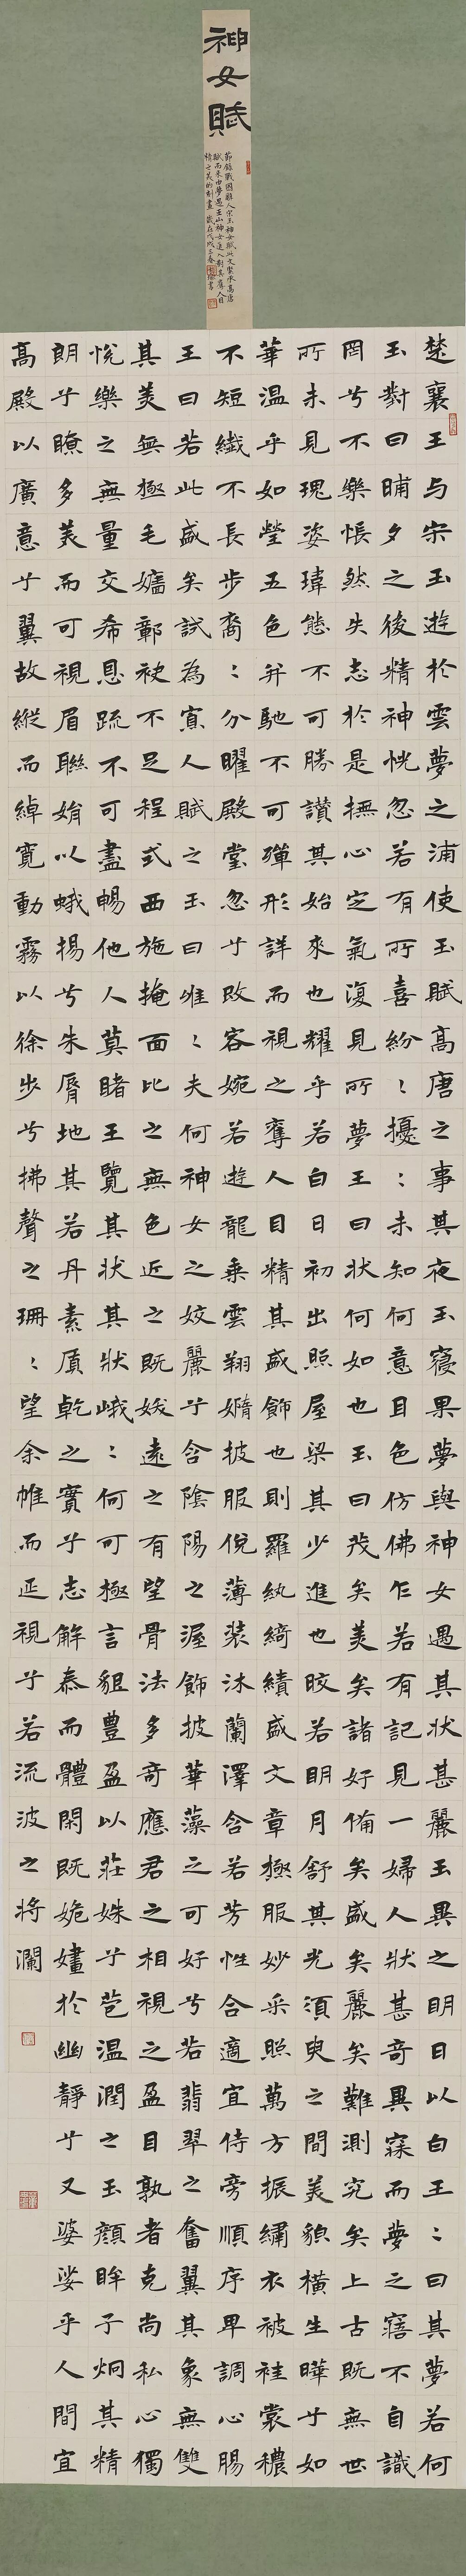 神女賦
節錄戰國楚人宋玉神女賦此文緊承高唐
賦而來由夢遇巫山神女進入對其奪人目
精之美的刻畫 歲在戊戌之春 書
楚襄王与宋玉遊於雲夢之浦使玉賦高唐之事其夜玉寢果夢與神女遇其狀甚麗玉異之明日以白王：曰其夢若何
玉對曰晡夕之後精神恍忽若有所喜紛：擾：未知何意目色仿佛乍若有記見一婦人狀甚奇異寐而夢之寤不自識
罔兮不樂悵然失志於是撫心定氣復見所夢王曰狀何如也玉曰茂矣美矣諸好備矣盛矣麗矣難測究矣上古既無世
所未見瑰姿瑋態不可勝讚其始來也耀乎若白日初出照屋梁其少進也皎若明月舒其光須臾之間美貌橫生曄兮如
華溫乎如瑩五色并馳不可殫形詳而視之奪人目精其盛飾也則羅紈綺績盛文章極服妙采照萬方振繡衣被袿裳穠
不短纖不長步裔：分曜殿堂忽兮改容婉若遊龍乘雲翔嫷披服侻薄裝沐蘭澤含若芳性合適宜侍旁順序卑調心腸
王曰若此盛矣試為寡人賦之玉曰唯：夫何神女之姣麗兮含陰陽之渥飾披華藻之可好兮若翡翠之奮翼其象無雙
其美無極毛嬙鄣袂不足程式西施掩面比之無色近之既妖遠之有望骨法多奇應君之相視之盈目孰者克尚私心獨
悅樂之無量交希恩疏不可盡暢他人莫睹王覽其狀其狀峨：何可極言貌豐盈以莊姝兮苞溫潤之玉顏眸子炯其精
朗兮瞭多美而可視眉聯娟以蛾揚兮朱脣地其若丹素質乾之實兮志解泰而體閑既姽嫿於幽靜兮又婆娑乎人間宜
高殿以廣意兮翼故縱而綽寬動霧以徐步兮拂聲之珊：望余帷而延視兮若流波之將瀾